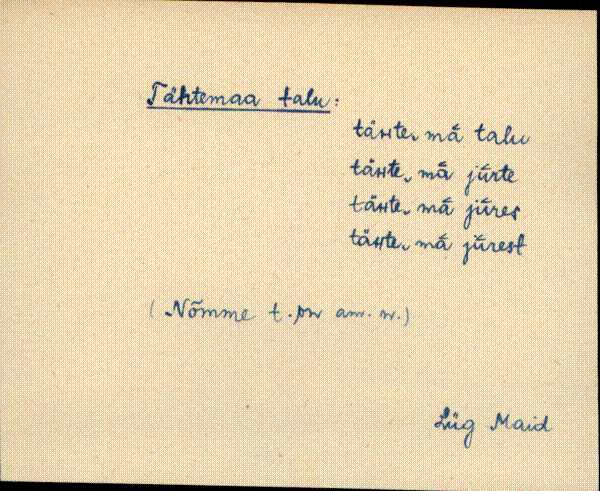 Tähtemaa talu:
täʜte˯mā́ talu
täʜte˯mā́ jǖrte
täʜte˯mā́ jǖres
täʜte˯mā́ jǖrest
(Nõmme t. pн am. n.)
Lüg Maid